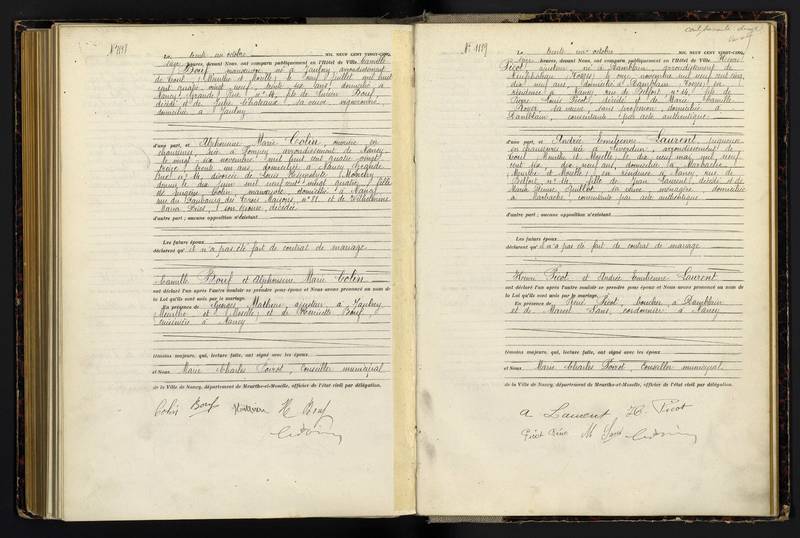 Le trente un octobre MIL NEUF CENT VINGT-CINQ,
seize heures, devant Nous, ont comparu publiquement en l'Hôtel de Ville Camille
Bouf né à Jaulny arrondissement
de Toul (Meurthe et Moselle) le neuf juillet mil huit
cent quatre vingt neuf, trente six ans, domicilié à
Nancy Grande Rue n° 14, fils de Bouf
décédé et de Julie sa veuve vigneronne,
domiciliée à Jaulny
d'une part, et Alphonsine Marie Colin, ouvrière en
chaussures, née à arrondissement de Nancy
le vingt six novembre mil huit cent quatre vingt
treize, trente un ans, domiciliée à Nancy Grande
Rue n° 14, divorcée de Louis Hippolyte
depuis le dix juin mil neuf cent vingt quatre, fille
de Eugène Colin, domicilié à Nancy
rue du Faubourg des Trois Maisons, n° 81, et de
Maria son épouse, décédée
d'autre part; aucune opposition n'existant
Les futurs époux
déclarent qu'il n'a pas été fait de contrat de mariage
Camille Bouf et Alphonsine Marie Colin
ont déclaré l'un après l'autre vouloir se prendre pour époux et Nous avons prononcé au nom de
la Loi qu'ils sont unis par le mariage.
En présence de Georges Mathieu, ajusteur à Jaulny
Meurthe et Moselle, et de Henriette Bouf,
à Nancy
témoins majeurs, qui, lecture faite, ont signé avec les époux
et Nous Marie Charles Poirot, Conseiller municipal
de la Ville de Nancy, département de Meurthe-et-Moselle, officier de l'état civil par délégation.
Colin Bouf H Bouf
N° 1189
Le trente un octobre MIL NEUF CENT VINGT-CINQ,
seize heures, devant Nous, ont comparu publiquement en l'Hôtel de Ville Henri
Picot, né à Ramblain, arrondissement de
Neufchâteau (Vosges) le onze novembre mil neuf cent cinq,
dix neuf ans, domicilié à Ramblain Vosges, en
résidence à Nancy rue de Belfort n° 14, fils de
Pierre Louis Picot, décédé et de Marie Camille
sa veuve, sans profession, domiciliée à
Ramblain, consentante par acte authentique
d'une part, et Andrée Emilienne Laurent, piqueuse
en chaussures, née à arrondissement de
Toul Meurthe et Moselle, le dix neuf mai mil neuf
cent six, dix neuf ans, domiciliée à Marbache
Meurthe et Moselle, en résidence à Nancy, rue de
Belfort n° 14, fille de Jean Laurent, décédé, et de
Marie sa veuve ménagère domiciliée
à Marbache, consentante par acte authentique
d'autre part; aucune opposition n'existant
Les futurs époux
déclarent qu'il n'a pas été fait de contrat de mariage
Henri Picot et Andrée Emilienne Laurent
ont déclaré l'un après l'autre vouloir se prendre pour époux et Nous avons prononcé au nom de
la Loi qu'ils sont unis par le mariage.
En présence de René Picot, boucher, à Ramblain
et de Marcel Sans, cordonnier à Nancy
témoins majeurs, qui, lecture faite, ont signé avec les époux
et Nous Marie Charles Poirot, Conseiller municipal
de la Ville de Nancy, département de Meurthe-et-Moselle, officier de l'état civil par délégation.
A Laurent H Picot
Picot René M Sans